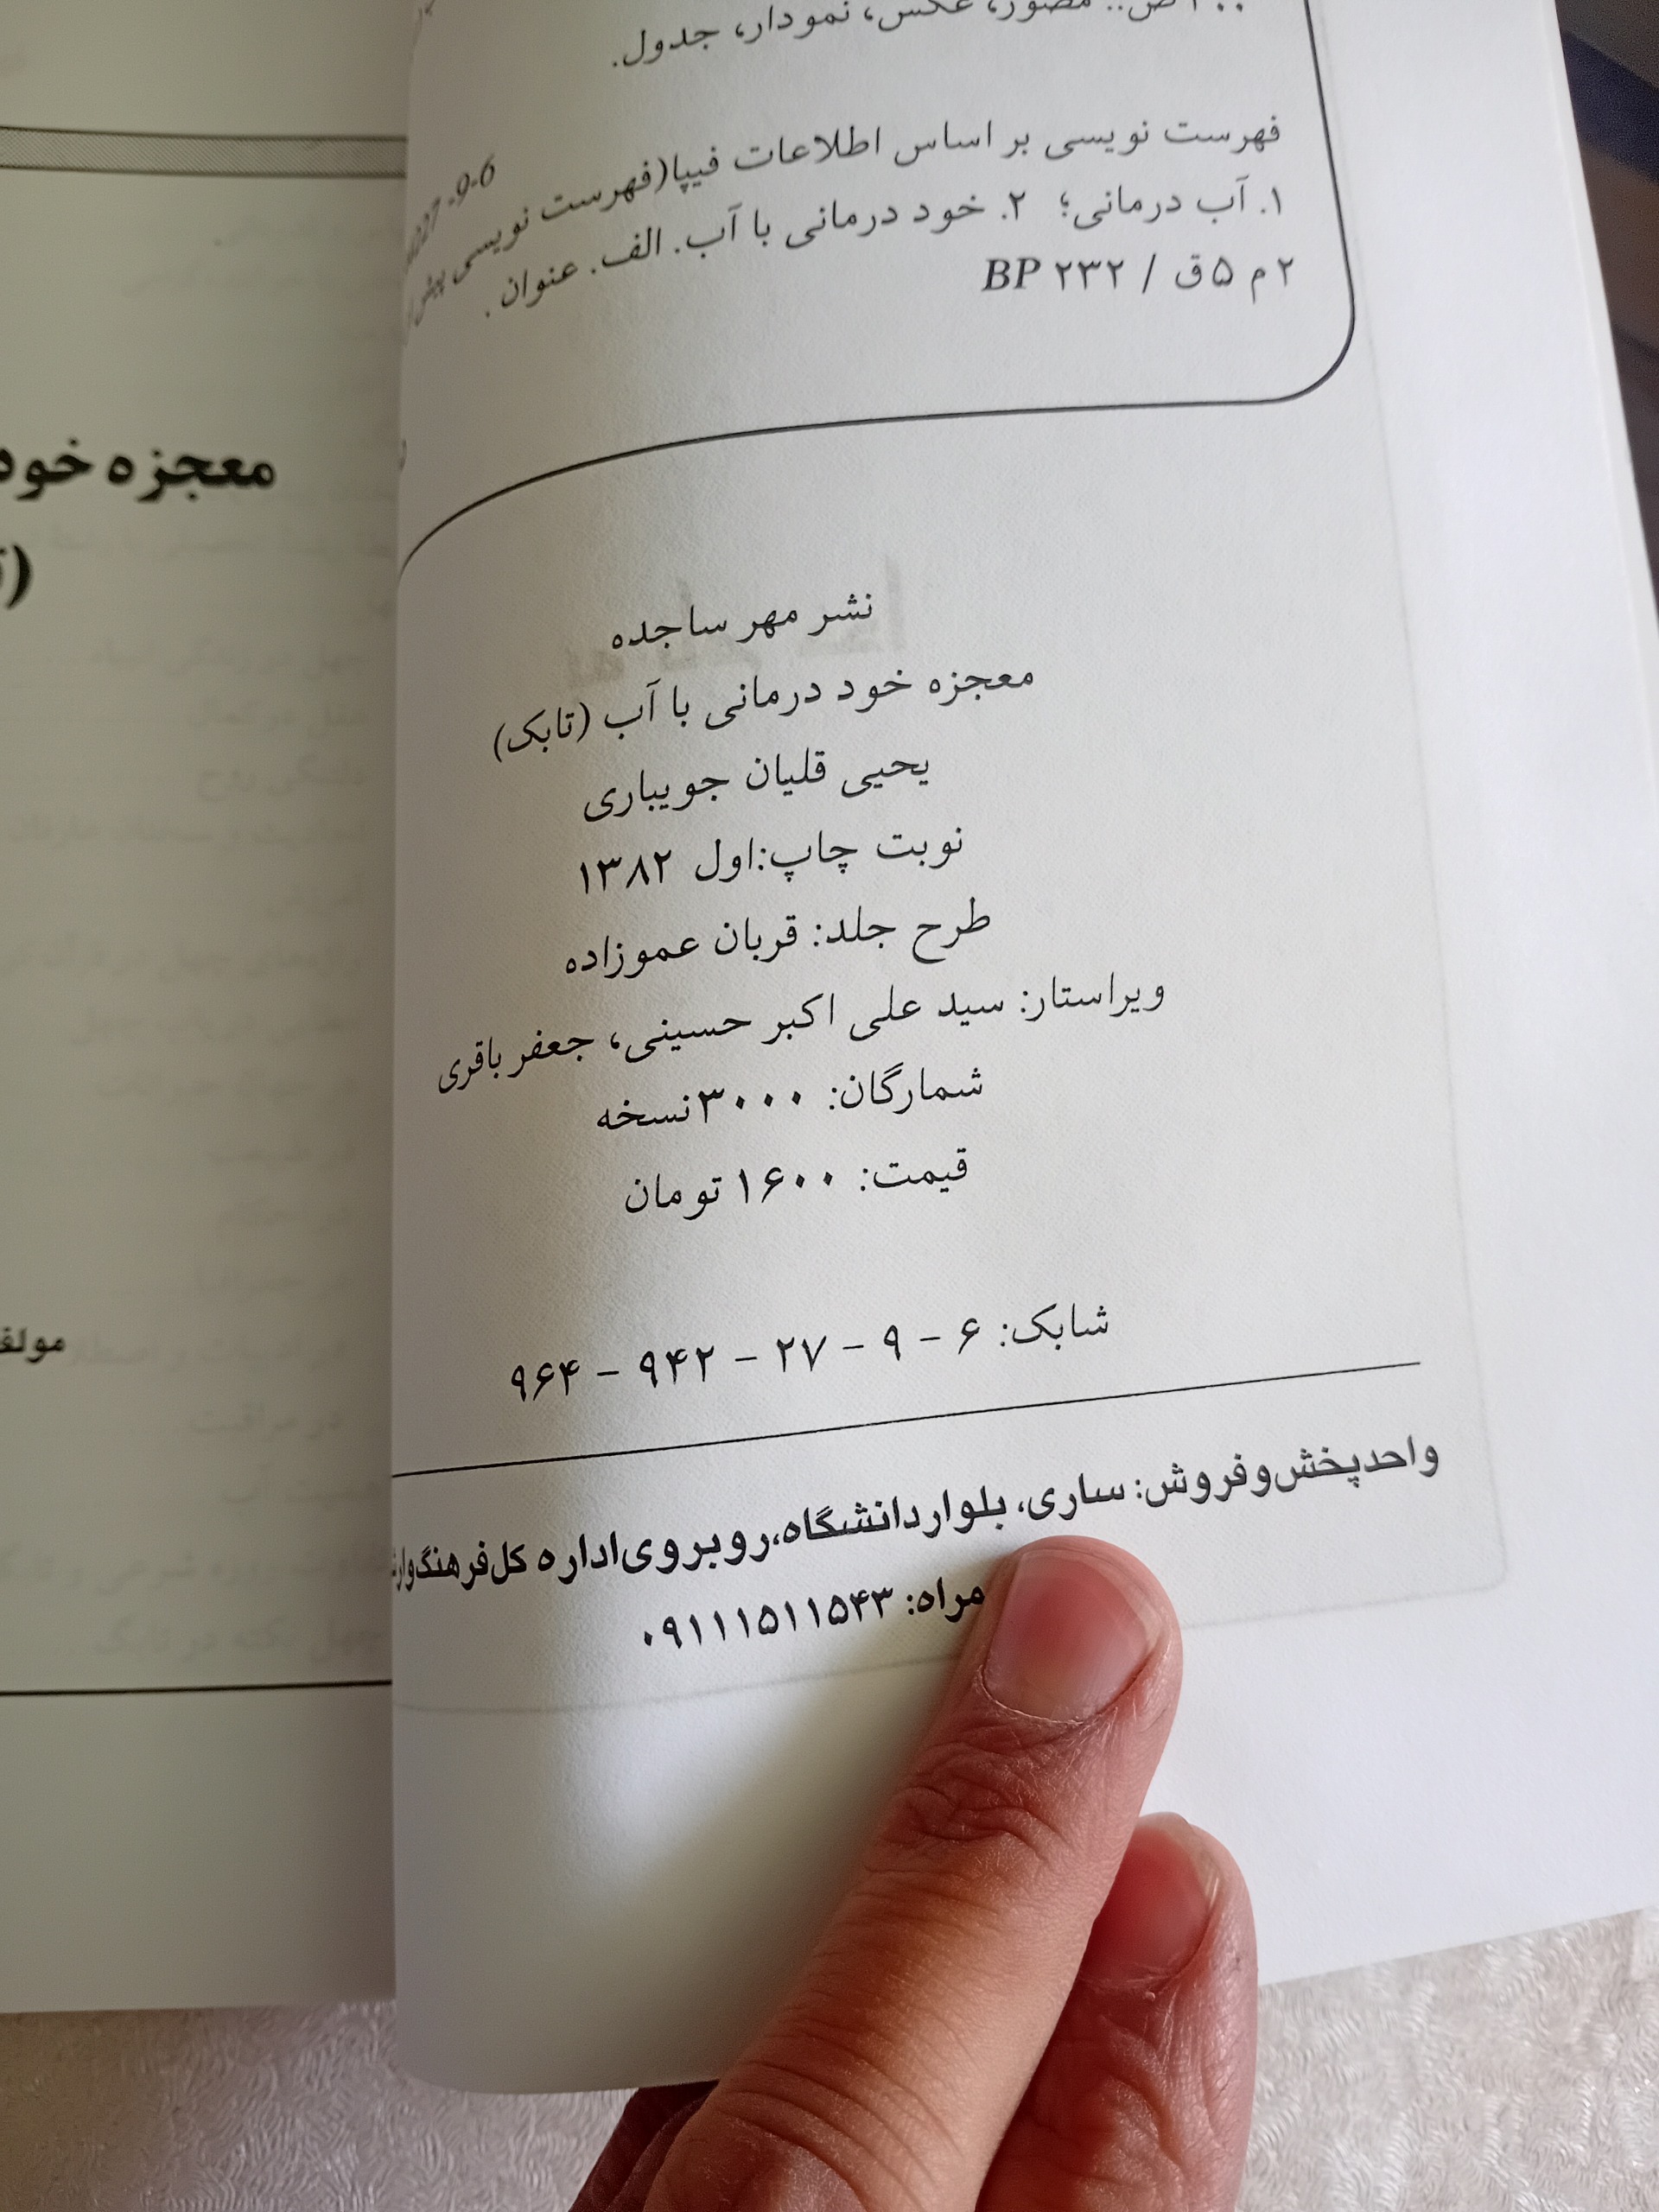 مصور، عکس، نمودار، جدول.
فهرست نویسی بر اساس اطلاعات فیپا(فهرست نویسی پیش
۱. آب درمانی؛ ۲. خود درمانی با آب. الف. عنوان.
۲ م ۵ ق / ۲۳۲ BP
نشر مهر ساجده
معجزه خود درمانی با آب (تابک)
یحیی قلیان جویباری
نوبت چاپ:اول ۱۳۸۲
طرح جلد: قربان عموزاده
ویراستار: سید علی اکبر حسینی، جعفر باقری
شمارگان: ۳۰۰۰نسخه
قیمت: ۱۶۰۰ تومان
شابک: ۶ - ۹ - ۲۷ - ۹۴۲ - ۹۶۴
واحدپخش‌وفروش: ساری، بلواردانشگاه،روبروی‌اداره کل‌فرهنگ‌وار
مراه: ۰۹۱۱۱۵۱۱۵۴۳
معجزه خود